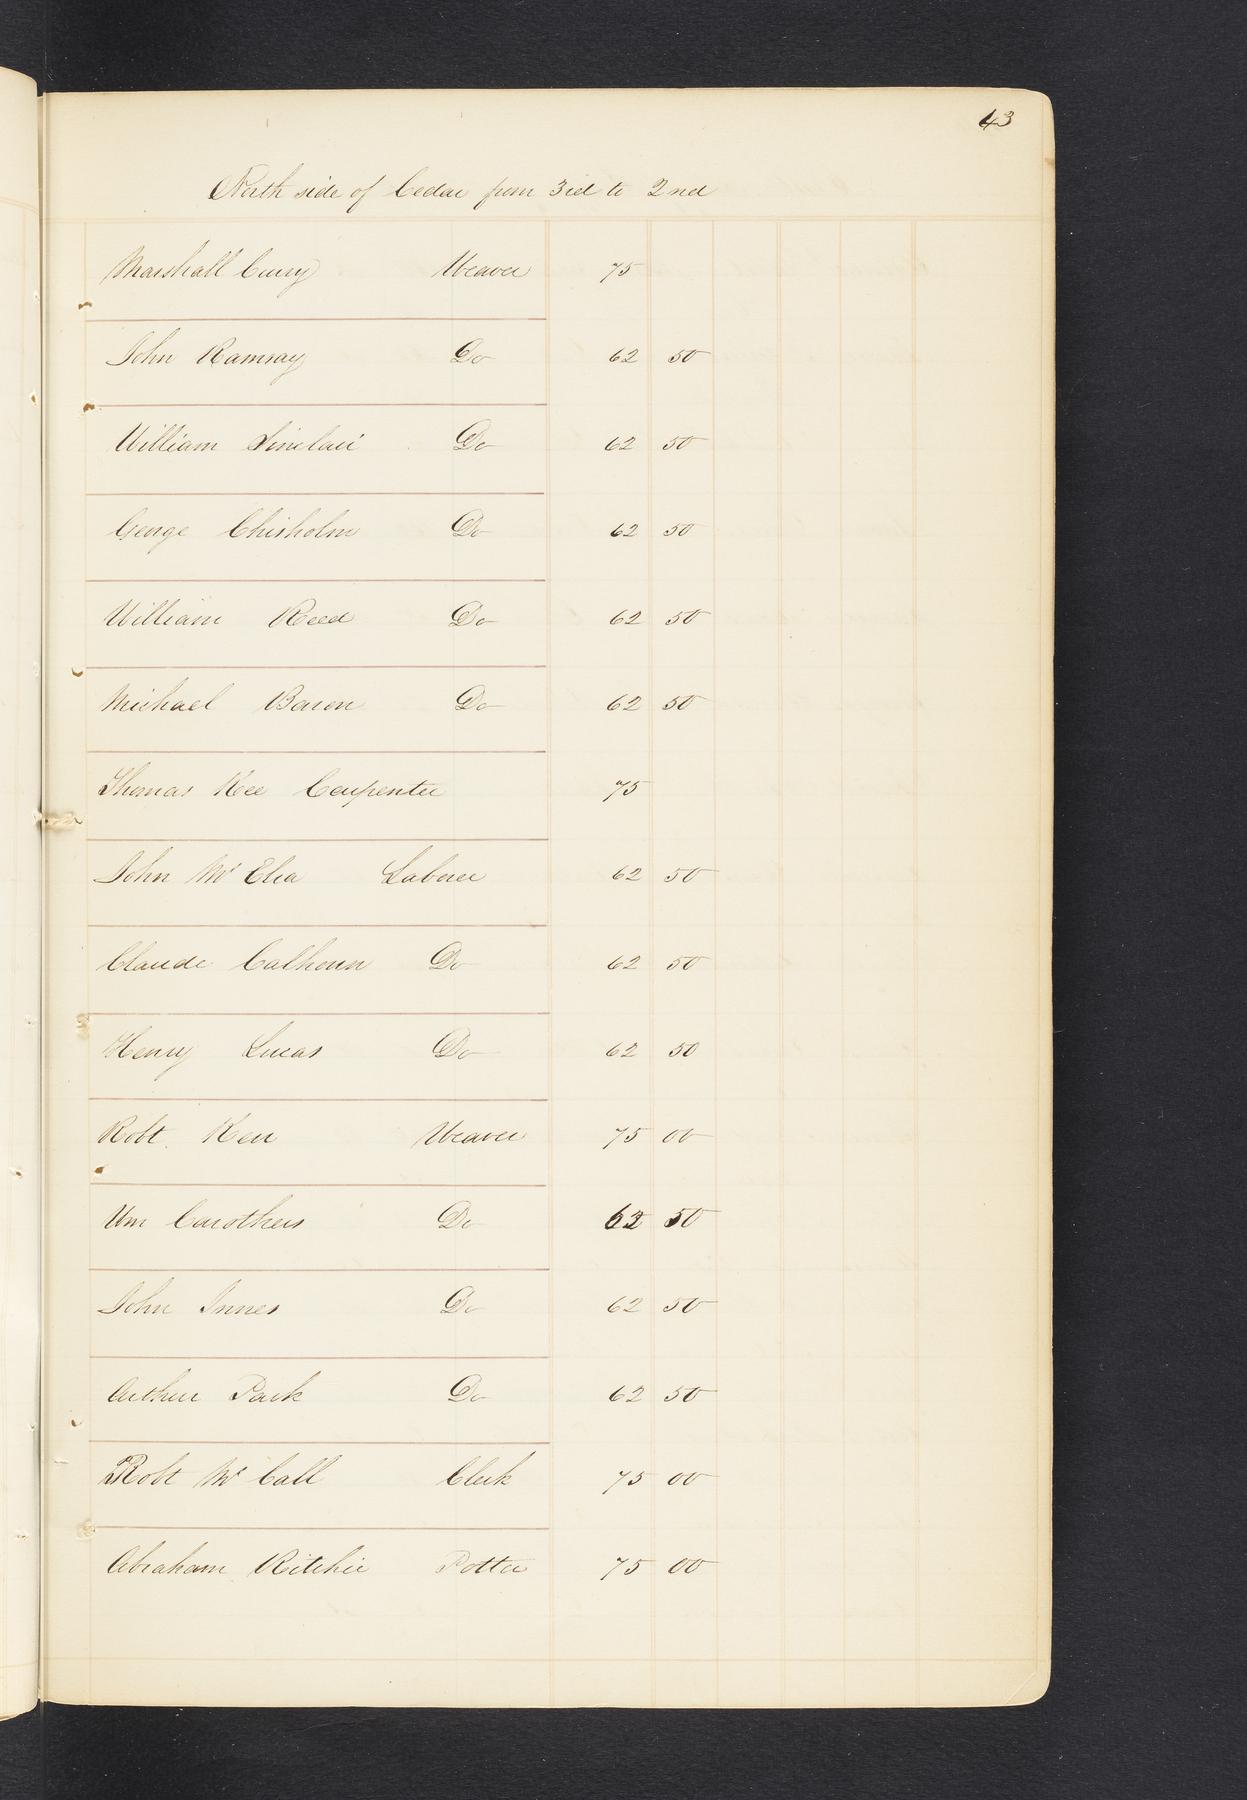 43
North side of Cedar from 3rd to 2nd
Marshall Curry Weaver 75
John Ramsay Do 62 50
William Sinclair Do 62 50
George Chisholm Do 62 50
William Reed Do 62 50
Michael Baron Do 62 50
Thomas Kee Carpenter 75
John Mc Elra Laborer 62 50
Claude Calhoun Do 62 50
Henry Lucas Do 62 50
Robt. Kerr Weaver 75 00
Wm Carothers Do 62 50
John Innes Do 62 50
Arthur Park Do 62 50
Robt Mc Call Clerk 75 00
Abraham Ritchie Potter 75 00